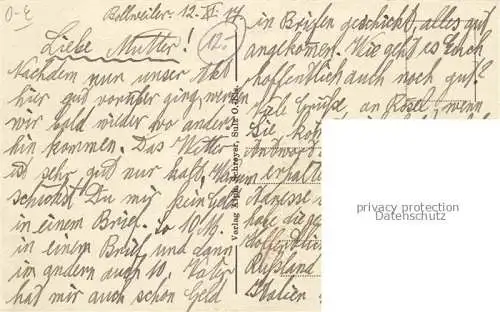 O-E
Bollweiler. 12. XI. 17.
12.
Liebe Mutter!
Nachdem nun unser Akt
hier gut vorüber ging, werden
wir bald wieder wo anders
hin kommen. Das Wetter
ist sehr gut nur kalt. Warum
schickst Du mir kein Geld
in einem Brief. So 10 M.
in einem Brief und dann
im andern auch 10. Vater
hat mir auch schon Geld
in Briefen geschickt, alles gut
angekommen. Wie geht es Euch
hoffentlich auch noch gut?
Viele Grüße an Rosel, wenn
Sie
Antwort
erhalte
Adresse
habe die
Hoffentlich
Rußland
Italien
Verlag Elise Schreyer, Sulz O.-Els.
PRIVACY PROTECTION
Datenschutz